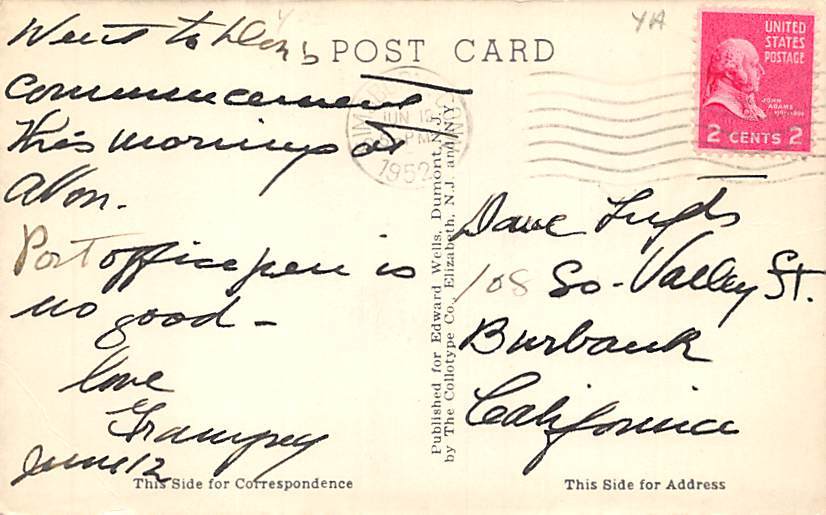 Went to Don's
commencement
this morning at
Avon.
Post office pen is
no good -
love
Grampey
June 12
This Side for Correspondence
POST CARD
YA
JUN 12
PM
1952
UNITED
STATES
POSTAGE
JOHN
ADAMS
2 CENTS 2
Published for Edward Wells, Dumont, N.J.
by The Collotype Co., Elizabeth, N.J. and N.Y.
Dave
108 So - Valley St.
Burbank
California
This Side for Address